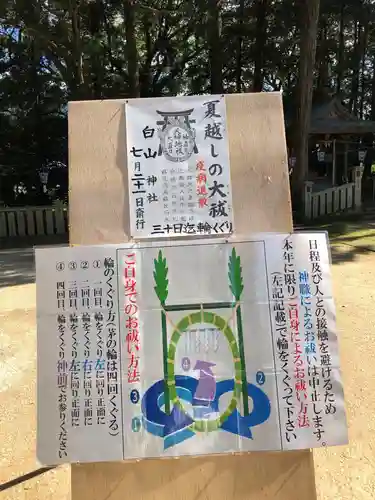 夏越しの大祓
疫病退散
白山神社
七月二十一日斎行
三十日迄輪くぐり
日程及び人との接触を避けるため
神職によるお祓いは中止します。
本年に限りご自身によるお祓い方法
(左記記載)で輪をくぐって下さい
ご自身でのお祓い方法
輪のくぐり方(茅の輪は四回くぐる)
① 一回目 輪をくぐり左に回り正面に
② 二回目 輪をくぐり右に回り正面に
③ 三回目 輪をくぐり左に回り正面に
④ 四回目 輪をくぐり神前でお参りください
④
②
③
①